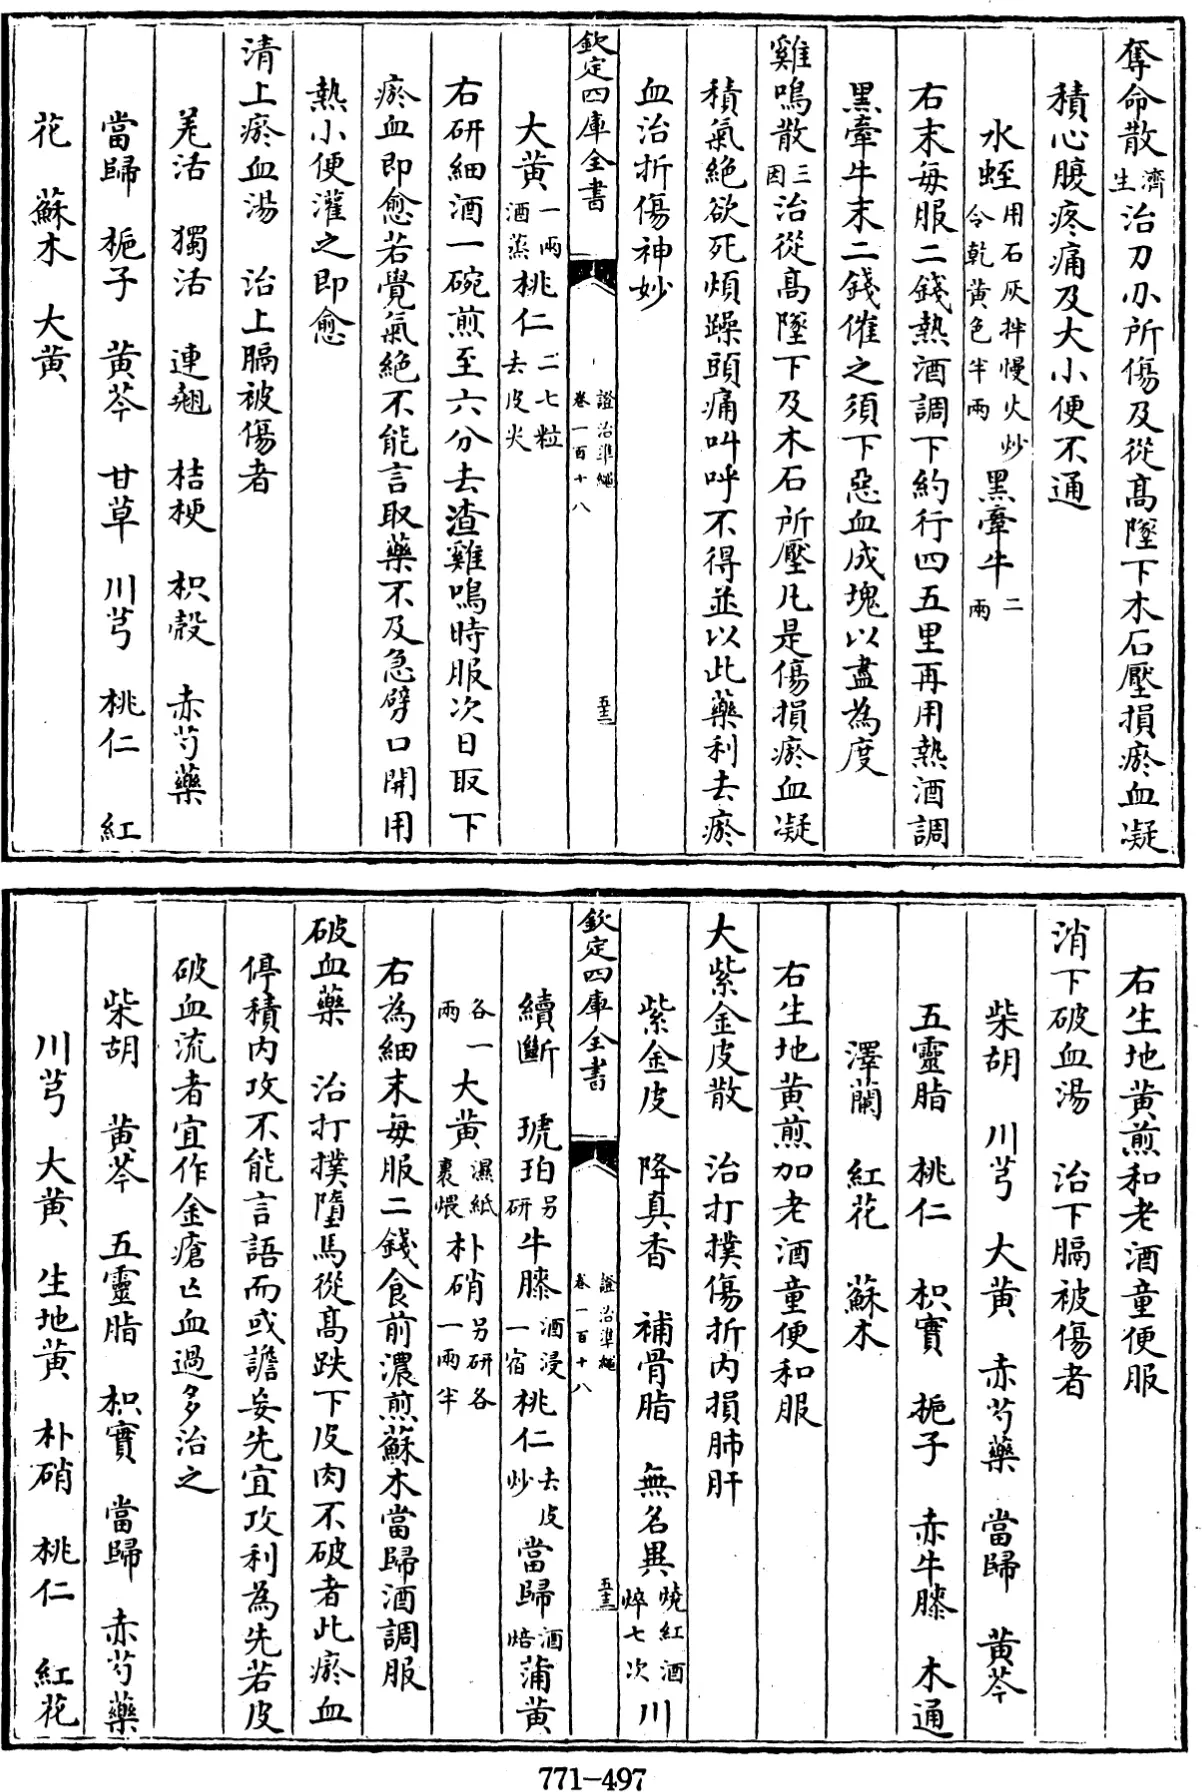 奪命散濟生治刀刃所傷及從髙墜下木石壓損瘀血凝
積心腹疼痛及大小便不通
水蛭用石灰拌慢火炒令乾黃色半兩黑牽牛二兩
右末每服二錢熱酒調下約行四五里再用熱酒調
黑牽牛末二錢催之須下惡血成塊以盡為度
雞鳴散三因治從髙墜下及木石所壓凡是傷損瘀血凝
積氣絶欲死煩躁頭痛叫呼不得並以此藥利去瘀
血治折傷神妙
欽定四庫全書 證治準繩卷一百十八 五十三
大黃一兩酒蒸桃仁二七粒去皮尖
右研細酒一碗煎至六分去渣雞鳴時服次日取下
瘀血即愈若覺氣絶不能言取藥不及急劈口開用
熱小便灌之即愈
清上瘀血湯 治上膈被傷者
羌活 獨活 連翹 桔梗 枳殼 赤芍藥
當歸 梔子 黃芩 甘草 川芎 桃仁 紅
花 蘇木 大黃
右生地黃煎和老酒童便服
消下破血湯 治下膈被傷者
柴胡 川芎 大黃 赤芍藥 當歸 黃芩
五靈脂 桃仁 枳實 梔子 赤牛膝 木通
澤蘭 紅花 蘇木
右生地黃煎加老酒童便和服
大紫金皮散 治打撲傷折內損肺肝
紫金皮 降真香 補骨脂 無名異燒紅酒焠七次川
欽定四庫全書 證治準繩卷一百十八 五十三
續斷 琥珀另研牛膝酒浸一宿桃仁去皮炒當歸酒焙蒲黃
各一兩大黃濕紙裹煨朴硝另研各一兩半
右為細末每服二錢食前濃煎蘇木當歸酒調服
破血藥 治打撲墮馬從髙跌下皮肉不破者此瘀血
停積內攻不能言語而或譫妄先宜攻利為先若皮
破血流者宜作金瘡亡血過多治之
柴胡 黃芩 五靈脂 枳實 當歸 赤芍藥
川芎 大黃 生地黃 朴硝 桃仁 紅花
771-497